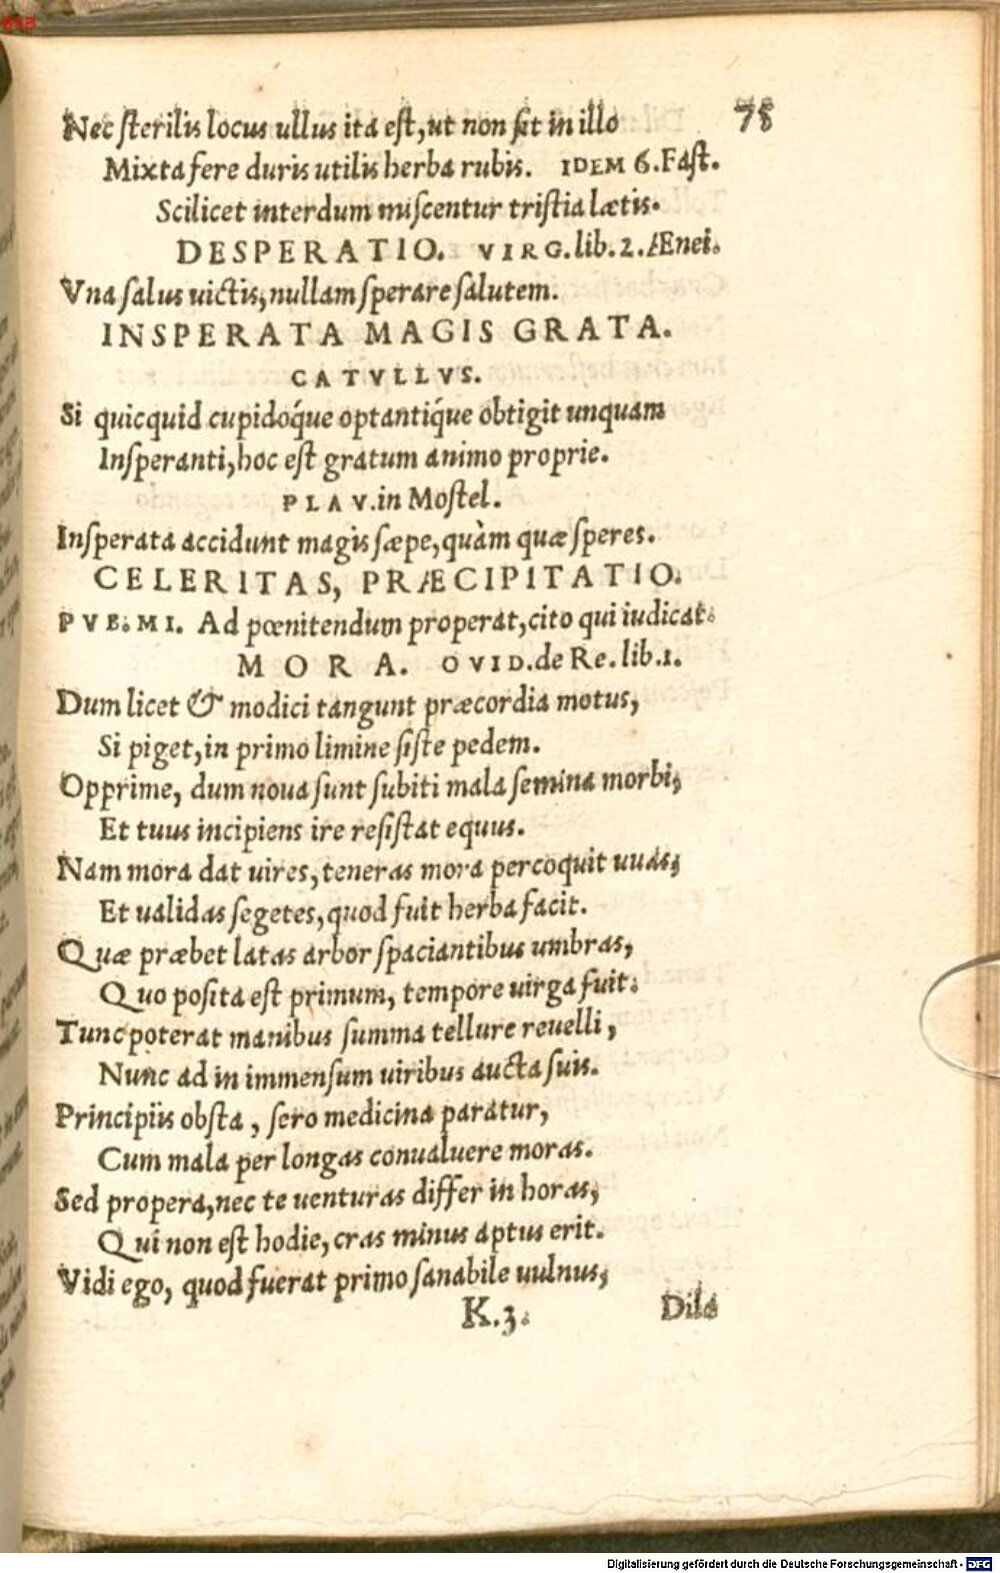 Nec sterilis locus ullus ita est, ut non sit in illo 78
Mixta fere duris utilis herba rubis. IDEM 6. Fast.
Scilicet interdum miscentur tristia lætis.
DESPERATIO. VIRG. lib. 2. Ænei.
Vna salus uictis, nullam sperare salutem.
INSPERATA MAGIS GRATA.
CATVLLVS.
Si quicquid cupidóque optantíque obtigit unquam
Insperanti, hoc est gratum animo proprie.
PLAV. in Mostel.
Insperata accidunt magis sæpe, quàm quæ speres.
CELERITAS, PRÆCIPITATIO.
PVB. MI. Ad pœnitendum properat, cito qui iudicat.
MORA. OVID. de Re. lib. 1.
Dum licet & modici tangunt præcordia motus,
Si piget, in primo limine siste pedem.
Opprime, dum noua sunt subiti mala semina morbi,
Et tuus incipiens ire resistat equus.
Nam mora dat uires, teneras mora percoquit uuas,
Et ualidas segetes, quod fuit herba facit.
Quæ præbet latas arbor spaciantibus umbras,
Quo posita est primum, tempore uirga fuit.
Tunc poterat manibus summa tellure reuelli,
Nunc ad in immensum uiribus aucta suis.
Principiis obsta, sero medicina paratur,
Cum mala per longas conualuere moras.
Sed propera, nec te uenturas differ in horas,
Qui non est hodie, cras minus aptus erit.
Vidi ego, quod fuerat primo sanabile uulnus,
K. 3. Dila
Digitalisierung gefördert durch die Deutsche Forschungsgemeinschaft - DFG